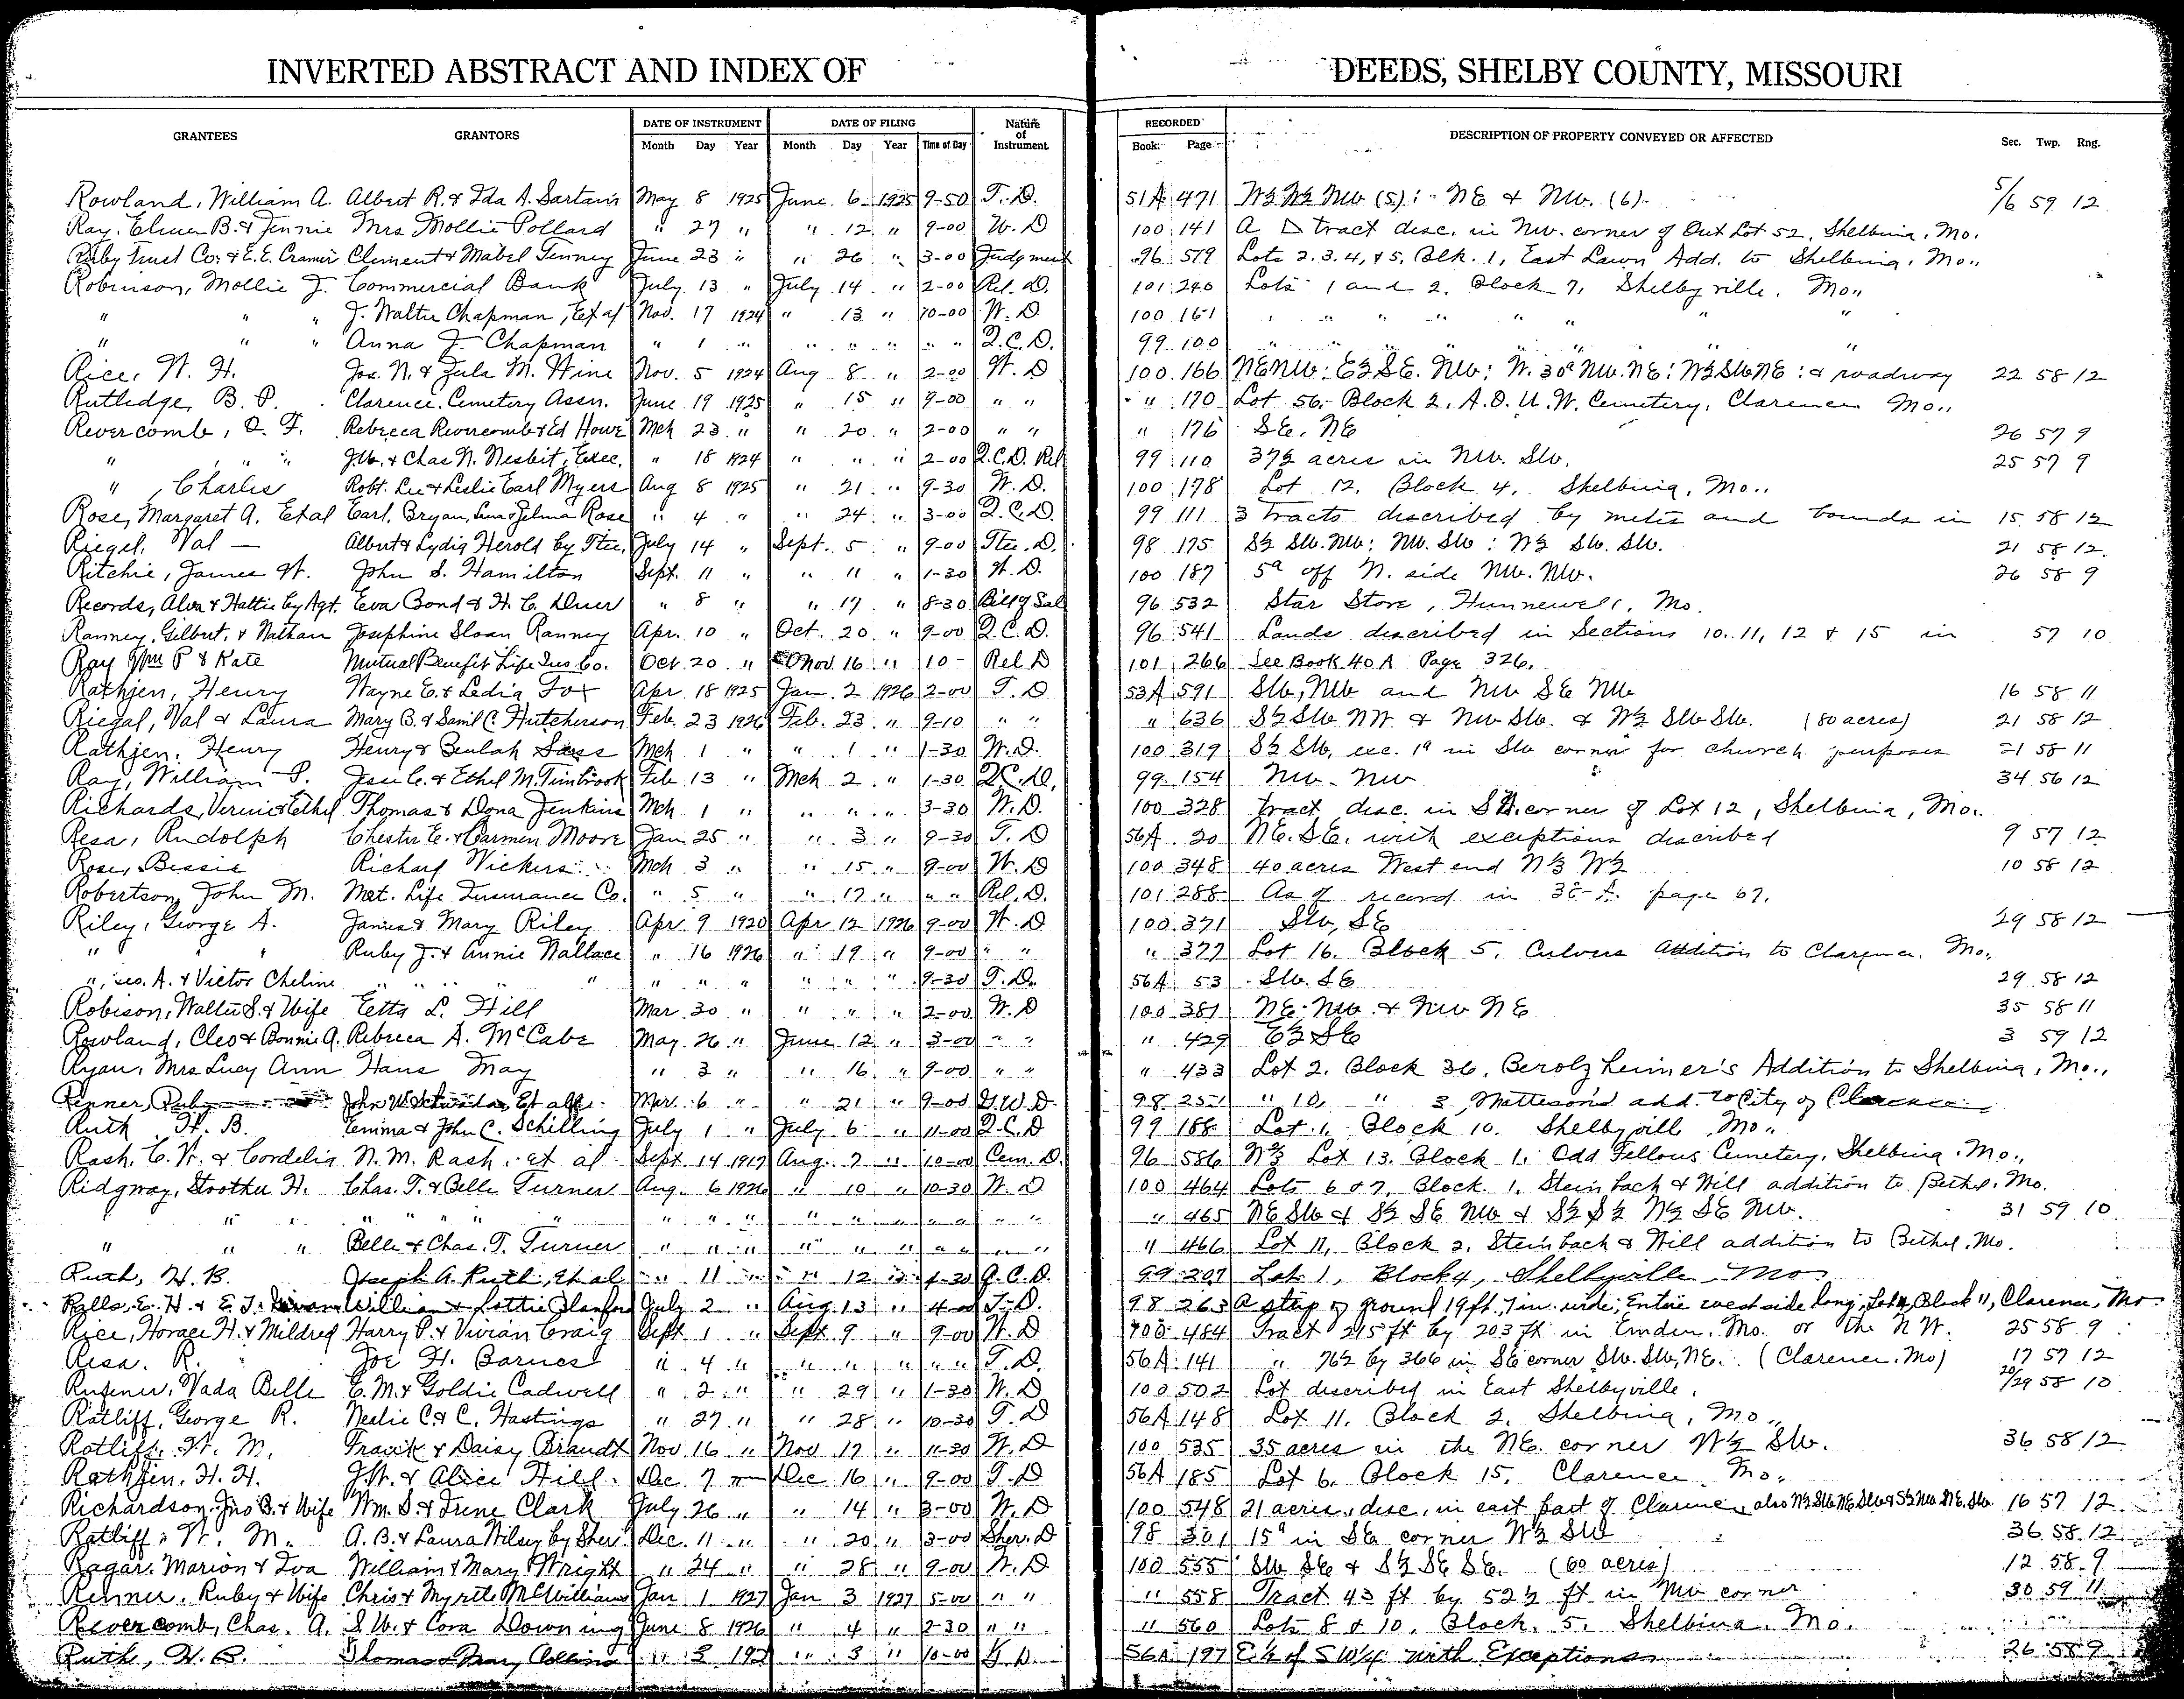 INVERTED ABSTRACT AND INDEX OF DEEDS, SHELBY COUNTY, MISSOURI
GRANTEES GRANTORS DATE OF INSTRUMENT DATE OF FILING Nature of Instrument RECORDED DESCRIPTION OF PROPERTY CONVEYED OR AFFECTED Sec. Twp. Rng.
Month Day Year Month Day Year Time of Day Book Page
Rowland, William A. Albert R. & Ida A. Sartain May 8 1925 June 6 1925 9-50 T.D. 51A 471 W½ W½ NW (5): NE & NW. (6). 5/6 59 12
Ray, Elmer B. & Jennie Mrs Mollie Pollard " 27 " " 12 " 9-00 W.D 100 141 A tract desc. in NW. corner of Out Lot 52, Shelbina, Mo.
Ruby Trust Co. & E.E. Cramer Clement & Mabel Tenney June 23 " " 26 " 3-00 Judgment 96 579 Lots 2.3.4, & 5, Blk. 1, East Lawn Add. to Shelbina, Mo.,
Robinson, Mollie J. Commercial Bank July 13 " July 14 " 2-00 Rel. D. 101 240 Lots 1 and 2, Block 7, Shelbyville, Mo.,
" " " J. Walter Chapman, Et al Nov. 17 1924 " 13 " 10-00 W.D 100 161 " " " " " " "
" " " Anna J. Chapman " 1 " " " " " " Q.C.D. 99 100 " " " " " " "
Rice, W. H. Jos. N. & Zula M. Wine Nov. 5 1924 Aug 8 " 2-00 W.D 100 166 NE NW: E½ S.E. NW: W. 30ª NW. NE: W½ SW NE: & roadway 22 58 12
Rutledge, B. P. Clarence Cemetery Assn. June 19 1925 " 15 " 9-00 " " " 170 Lot 56, Block 2, A.O.U.W. Cemetery, Clarence Mo.,
Revercomb, O. F. Rebecca Revercomb & Ed Howe Mch 23 " " 20 " 2-00 " " " 176 S.E. NE 26 57 9
" " " J.W. & Chas N. Nesbit, Exec. " 18 1924 " " " 2-00 Q.C.D. Rel 99 110 37½ acres in NW. SW. 25 57 9
" , Charles Robt. Lee & Leslie Earl Myers Aug 8 1925 " 21 " 9-30 W.D. 100 178 Lot 12, Block 4, Shelbina, Mo.,
Rose, Margaret A. Et al Earl, Bryan, & Zelma Rose " 4 " " 24 " 3-00 Q.C.D. 99 111 3 tracts described by metes and bounds in 15 58 12
Riegel, Val — Albert & Lydia Herold by Ttee. July 14 " Sept. 5 " 9-00 Ttee. D. 98 175 S½ SW. NW: NW. SW: W½ SW. SW. 21 58 12
Ritchie, James W. John S. Hamilton Sept. 11 " " 11 " 1-30 W.D. 100 187 5ª off N. side NW. NW. 26 58 9
Records, Alva & Hattie by Agt. Eva Bond & H. C. Duer " 8 " " 17 " 8-30 Bill of Sal 96 532 Star Store, Hunnewell, Mo.
Ranney, Gilbert, & Nathan Josephine Sloan Ranney Apr. 10 " Oct. 20 " 9-00 Q.C.D. 96 541 Lands described in Sections 10, 11, 12 & 15 in 57 10
Ray Wm P & Kate Mutual Benefit Life Ins Co. Oct 20 " Nov 16 " 10 - Rel D 101 266 See Book 40 A Page 326.
Rathjen, Henry Wayne E. & Ledia Fox Apr 18 1925 Jan 2 1926 2-00 T.D 53A 591 SW, NW and NW SE NW 16 58 11
Riegal, Val & Laura Mary B. & Saml C. Hutcherson Feb. 23 1926 Feb. 23 " 9-10 " " " 636 S½ SW NW & NW SW. & W½ SW SW. (80 acres) 21 58 12
Rathjen, Henry Henry & Beulah Sass Mch 1 " " 1 " 1-30 W.D. 100 319 S½ SW, exc. 1ª in SW corner for church purposes 21 58 11
Ray, William P. Jesse C. & Ethel M. Timbrook Feb 13 " Mch 2 " 1-30 Q.C.D. 99 154 NW. NW 34 56 12
Richards, Vernie & Ethel Thomas & Dona Jenkins Mch 1 " " " " 3-30 W.D. 100 328 tract desc. in corner of Lot 12, Shelbina, Mo.
Resa, Rudolph Chester E. & Carmen Moore Jan 25 " " 3 " 9-30 T.D 56A 20 NE. SE. with exceptions described 9 57 12
Rose, Bessie Richard Vickers Mch 3 " " 15 " 9-00 W.D 100 348 40 acres West end N½ W½ 10 58 12
Robertson, John M. Met. Life Insurance Co. " 5 " " 17 " " " Rel. D. 101 288 As of record in 38-A. page 67.
Riley, George A. James & Mary Riley Apr. 9 1920 Apr 12 1926 9-00 W.D 100 371 SW, SE 29 58 12
" " " Ruby J. & Annie Wallace " 16 1926 " 19 " 9-00 " " " 377 Lot 16, Block 5, Culvers Addition to Clarence, Mo.,
", Geo. A. & Victor Cheline " " " " " " " " " " 9-30 T.D. 56A 53 SW. SE 29 58 12
Robison, Walter S. & Wife Etta L. Hill Mar 30 " " " " 2-00 W.D 100 381 NE. NW. & NW NE 35 58 11
Rowland, Cleo & Bonnie A. Rebecca A. McCabe May 26 " June 12 " 3-00 " " " 429 E½ SE 3 59 12
Ryan, Mrs Lucy Ann Hans May " 3 " " 16 " 9-00 " " " 433 Lot 2, Block 36, Berolzheimer's Addition to Shelbina, Mo.,
Renner, Ruby John W. Et al Mar. 6 " " 21 " 9-00 G.W.D. 98 251 " 10 " 3, Matteson's add. to City of Clarence
Ruth H. B. Emma & John C. Schilling July 1 " July 6 " 11-00 Q.C.D 99 188 Lot 1, Block 10, Shelbyville Mo.,
Rash, C. W. & Cordelia N. M. Rash, et al Sept. 14 1917 Aug. 7 " 10-00 Cem. D. 96 586 N½ Lot 13, Block 1, Odd Fellows Cemetery, Shelbina, Mo.,
Ridgway, Stoother H. Chas. T. & Belle Turner Aug. 6 1926 " 10 " 10-30 W.D 100 464 Lots 6 & 7, Block 1, Steinbach & Will addition to Bethel, Mo.
" " " " " " " " " " " " " " " " " 465 NE SW & S½ SE NW & S½ S½ N½ SE NW. 31 59 10
" " " Belle & Chas. T. Turner " " " " " " " " " " " 466 Lot 11, Block 2, Steinbach & Will addition to Bethel, Mo.
Ruth, H. B. Joseph A. Ruth, et al " 11 " " 12 " 1-30 Q.C.D. 99 207 Lot 1, Block 4, Shelbyville, Mo.
Rallo, E. H. & E. J. William & Lottie Blanford July 2 " Aug 13 " 4-00 T.D. 98 263 A strip of ground 19 ft. 7 in. wide; Entire west side long; Lot 4, Block 11, Clarence, Mo
Rice, Horace H. & Mildred Harry P. & Vivian Craig Sept. 1 " Sept. 9 " 9-00 W.D 100 484 Tract 215 ft by 203 ft in Emden, Mo. or the NW. 25 58 9
Resa. R. Joe H. Barnes " 4 " " " " " " T.D. 56A 141 " 76½ by 366 in SE corner SW. SW, NE. (Clarence, Mo) 17 57 12
Rusener, Vada Belle E. M. & Goldie Cadwell " 2 " " 29 " 1-30 W.D 100 502 Lot described in East Shelbyville. 20/29 58 10
Ratliff, George R. Neslie C. & C. Hastings " 27 " " 28 " 10-30 T.D 56A 148 Lot 11, Block 2, Shelbina, Mo.,
Ratliff, W. M. Frank & Daisy Brandt Nov 16 " Nov 17 " 11-30 W.D 100 535 35 acres in the NE. corner W½ SW. 36 58 12
Rathjen, H. H. J.W. & Alice Hill Dec 7 " Dec 16 " 9-00 T.D 56A 185 Lot 6, Block 15, Clarence Mo.,
Richardson, Jno B. & Wife Wm. S. & Irene Clark July 26 " " 14 " 3-00 W.D 100 548 21 acres, desc. in east part of Clarence, also N½ SW NE SW & S½ NW NE. SW. 16 57 12
Ratliff, W. M. A. B. & Laura Wilsey by Sher. Dec. 11 " " 20 " 3-00 Sher. D 98 301 15ª in SE corner W½ SW 36 58 12
Ragar, Marion & Iva William & Mary Wright " 24 " " 28 " 9-00 W.D 100 555 SW SE & S½ SE SE. (60 acres) 12 58 9
Renner, Ruby & Wife Chris & Myrtle McWilliams Jan 1 1927 Jan 3 1927 5-00 " " " 558 Tract 43 ft by 52½ ft in NW corner 30 59 11
Revercomb, Chas. A. S. W. & Cora Downing June 8 1926 " 4 " 2-30 " " " 560 Lots 8 & 10, Block 5, Shelbina, Mo.
Ruth, H. B. Thomas & Mary Collins " 3 192 " 3 " 10-00 D. 56A 197 E½ of SW¼ with Exceptions 26 58 9